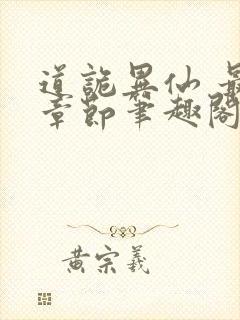 道詭異仙 最
章節筆趣閣
黃宗羲